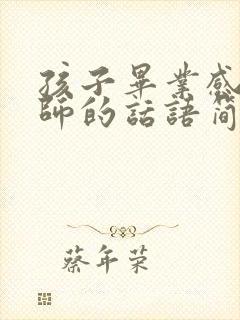 孩子畢業感
師的話語簡
蔡年荣